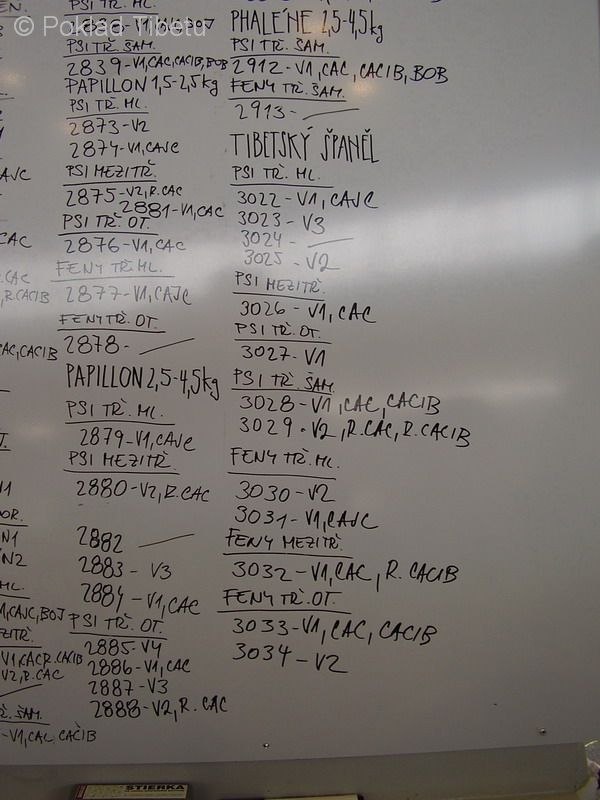 © Poklad Tibetu
EN.
AJC
CAC
R.CAC
R.CACIB
CAC,CACIB
T.
V1
DOR.
N1
ÍN2
ML.
1,CAJC,BOJ
EZITŘ.
V1CACR.CACIB
V2,R.CAC
Ř. ŠAM.
-V1,CAC,CACIB
PSI TŘ. ŠAM.
2839-V1,CAC,CACIB,BOB
PAPILLON 1,5-2,5kg
PSI TŘ. ML.
2873-V2
2874-V1,CAJC
PSI MEZITŘ.
2875-V2,R.CAC
2881-V1,CAC
PSI TŘ. OT.
2876-V1,CAC
FENY TŘ. ML.
2877-V1,CAJC
FENY TŘ. OT.
2878-
PAPILLON 2,5-4,5kg
PSI TŘ. ML.
2879-V1,CAJC
PSI MEZITŘ.
2880-V2,R.CAC
2882
2883- V3
2884-V1,CAC
PSI TŘ. OT.
2885-V4
2886-V1,CAC
2887-V3
2888-V2,R.CAC
PHALÉNE 2,5-4,5kg
PSI TŘ. ŠAM.
2912-V1,CAC,CACIB,BOB
FENY TŘ. ŠAM.
2913-
TIBETSKÝ ŠPANĚL
PSI TŘ. ML.
3022-V1,CAJC
3023-V3
3024-
3025-V2
PSI MEZITŘ.
3026-V1,CAC
PSI TŘ. OT.
3027-V1
PSI TŘ. ŠAM.
3028-V1,CAC,CACIB
3029-V2,R.CAC,R.CACIB
FENY TŘ. ML.
3030-V2
3031-V1,CAJC
FENY MEZITŘ.
3032-V1,CAC,R.CACIB
FENY TŘ. OT.
3033-V1,CAC,CACIB
3034-V2
STIERKA